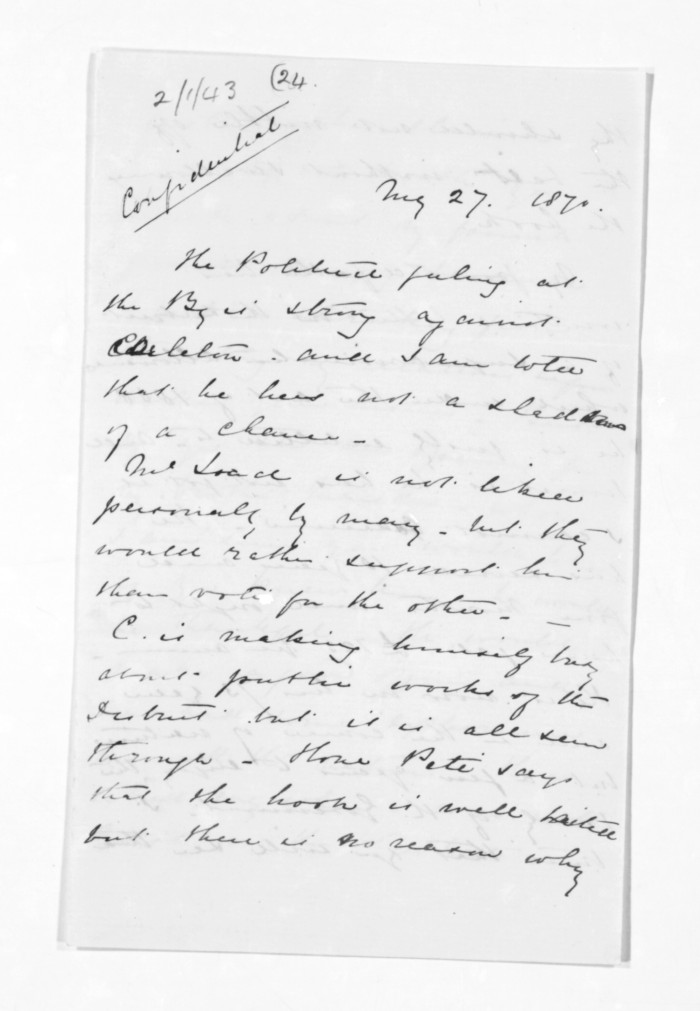 2/1/43 (24.
Confidential
Aug 27. 1870.
The Political feeling at
the Bay is strong against
Carleton - and I am told
that he has not a shadow
of a chance -
McLeod is not liked
personally by many - but they
would rather support him
than vote for the other -
C. is making himself busy
about public works of the
District but it is all seen
through - Hone Pete says
that the hook is well baited
but there is no reason why